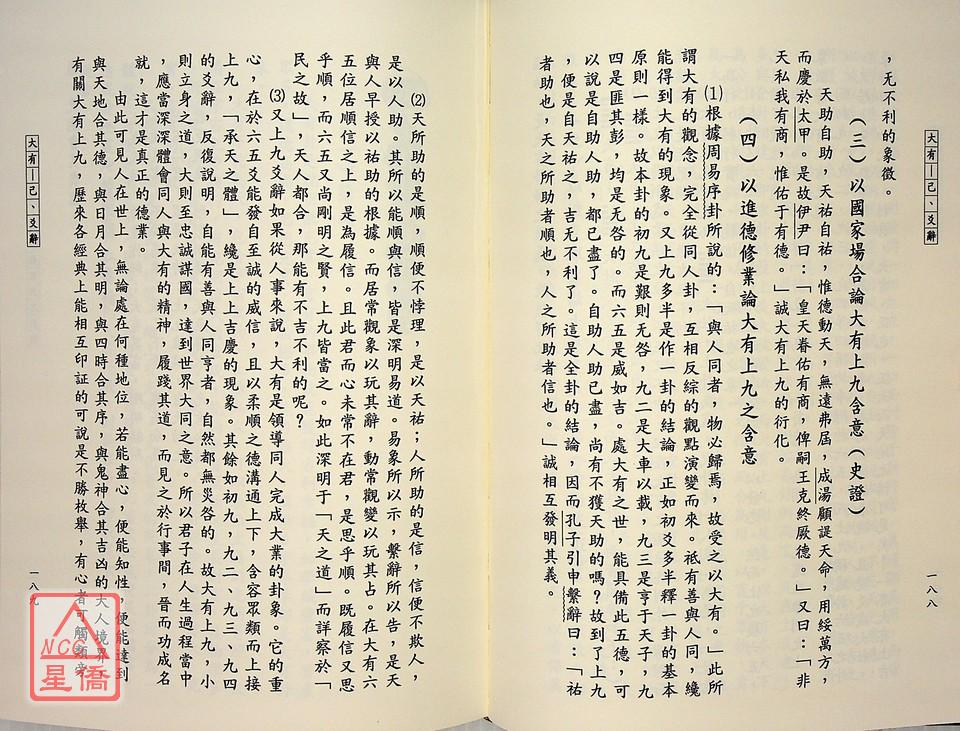 大有—己、爻辭
一八八
，无不利的象徵。
（三）以國家場合論大有上九含意（史證）
天助自助，天祐自祐，惟德動天，無遠弗屆，成湯顧諟天命，用綏萬方，
而慶於太甲。是故伊尹曰：「皇天眷佑有商，俾嗣王克終厥德。」又曰：「非
天私我有商，惟佑于有德。」誠大有上九的衍化。
（四）以進德修業論大有上九之含意
⑴根據周易序卦所說的：「與人同者，物必歸焉，故受之以大有。」此所
謂大有的觀念，完全從同人卦，互相反綜的觀點演變而來。祗有善與人同，纔
能得到大有的現象。又上九多半是作一卦的結論，正如初爻多半釋一卦的基本
原則一樣。故本卦的初九是艱則无咎，九二是大車以載，九三是亨于天子，九
四是匪其彭，均是无咎的。而六五是威如吉。處大有之世，能具備此五德，可
以說是自助人助，都已盡了。自助人助已盡，尚有不獲天助的嗎？故到了上九
，便是自天祐之，吉无不利了。這是全卦的結論，因而孔子引申繫辭曰：「祐
者助也，天之所助者順也，人之所助者信也。」誠相互發明其義。
⑵天所助的是順，順便不悖理，是以天祐；人所助的是信，信便不欺人，
是以人助。其所以能順與信，皆是深明易道。易象所以示，繫辭所以告，是天
與人早授以祐助的根據。而居常觀象以玩其辭，動常觀變以玩其占。在大有六
五位居順信之上，是為履信。且此君而心未常不在君，是思乎順。既履信又思
乎順，而六五又尚剛明之賢，上九皆當之。如此深明于「天之道」而詳察於「
民之故」，天人都合，那能有不吉不利的呢？
⑶又上九爻辭如果從人事來說，大有是領導同人完成大業的卦象。它的重
心，在於六五爻能發自至誠的威信，且以柔順之德溝通上下，含容眾類而上接
上九，「承天之體」，纔是上上吉慶的現象。其餘如初九、九二、九三、九四
的爻辭，反復說明，自能有善與人同亨者，自然都無災咎的。故大有上九，小
則立身之道，大則至忠誠謀國，達到世界大同之意。所以君子在人生過程當中
，應當深深體會同人與大有的精神，履踐其道，而見之於行事間，晉而功成名
就，這才是真正的德業。
由此可見人在世上，無論處在何種地位，若能盡心，便能知性，便能達到
與天地合其德，與日月合其明，與四時合其序，與鬼神合其吉凶的大人境界。
有關大有上九，歷來各經典上能相互印証的可說是不勝枚舉，有心者可觸類旁
大有—己、爻辭
一八九
NCC
星僑